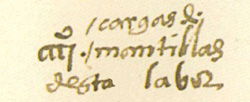 /cargas de
iiij / mantillas
desta labor